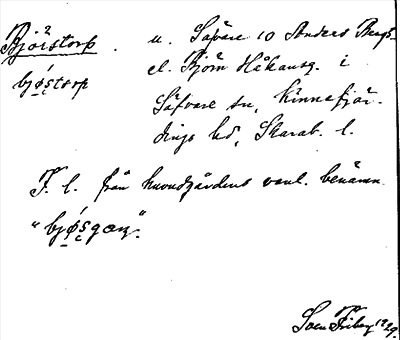 Björstorp . u. Säfvare 10 Anders Bengts.
bjǿstorp
el. Björn Håkansg. i
Säfvare sn, Kinnefjär-
dings hd, Skarab. l.
F. l. från huvudgården vanl. benämn
"bjǿsgæṇ".
Sven Friberg 1929.